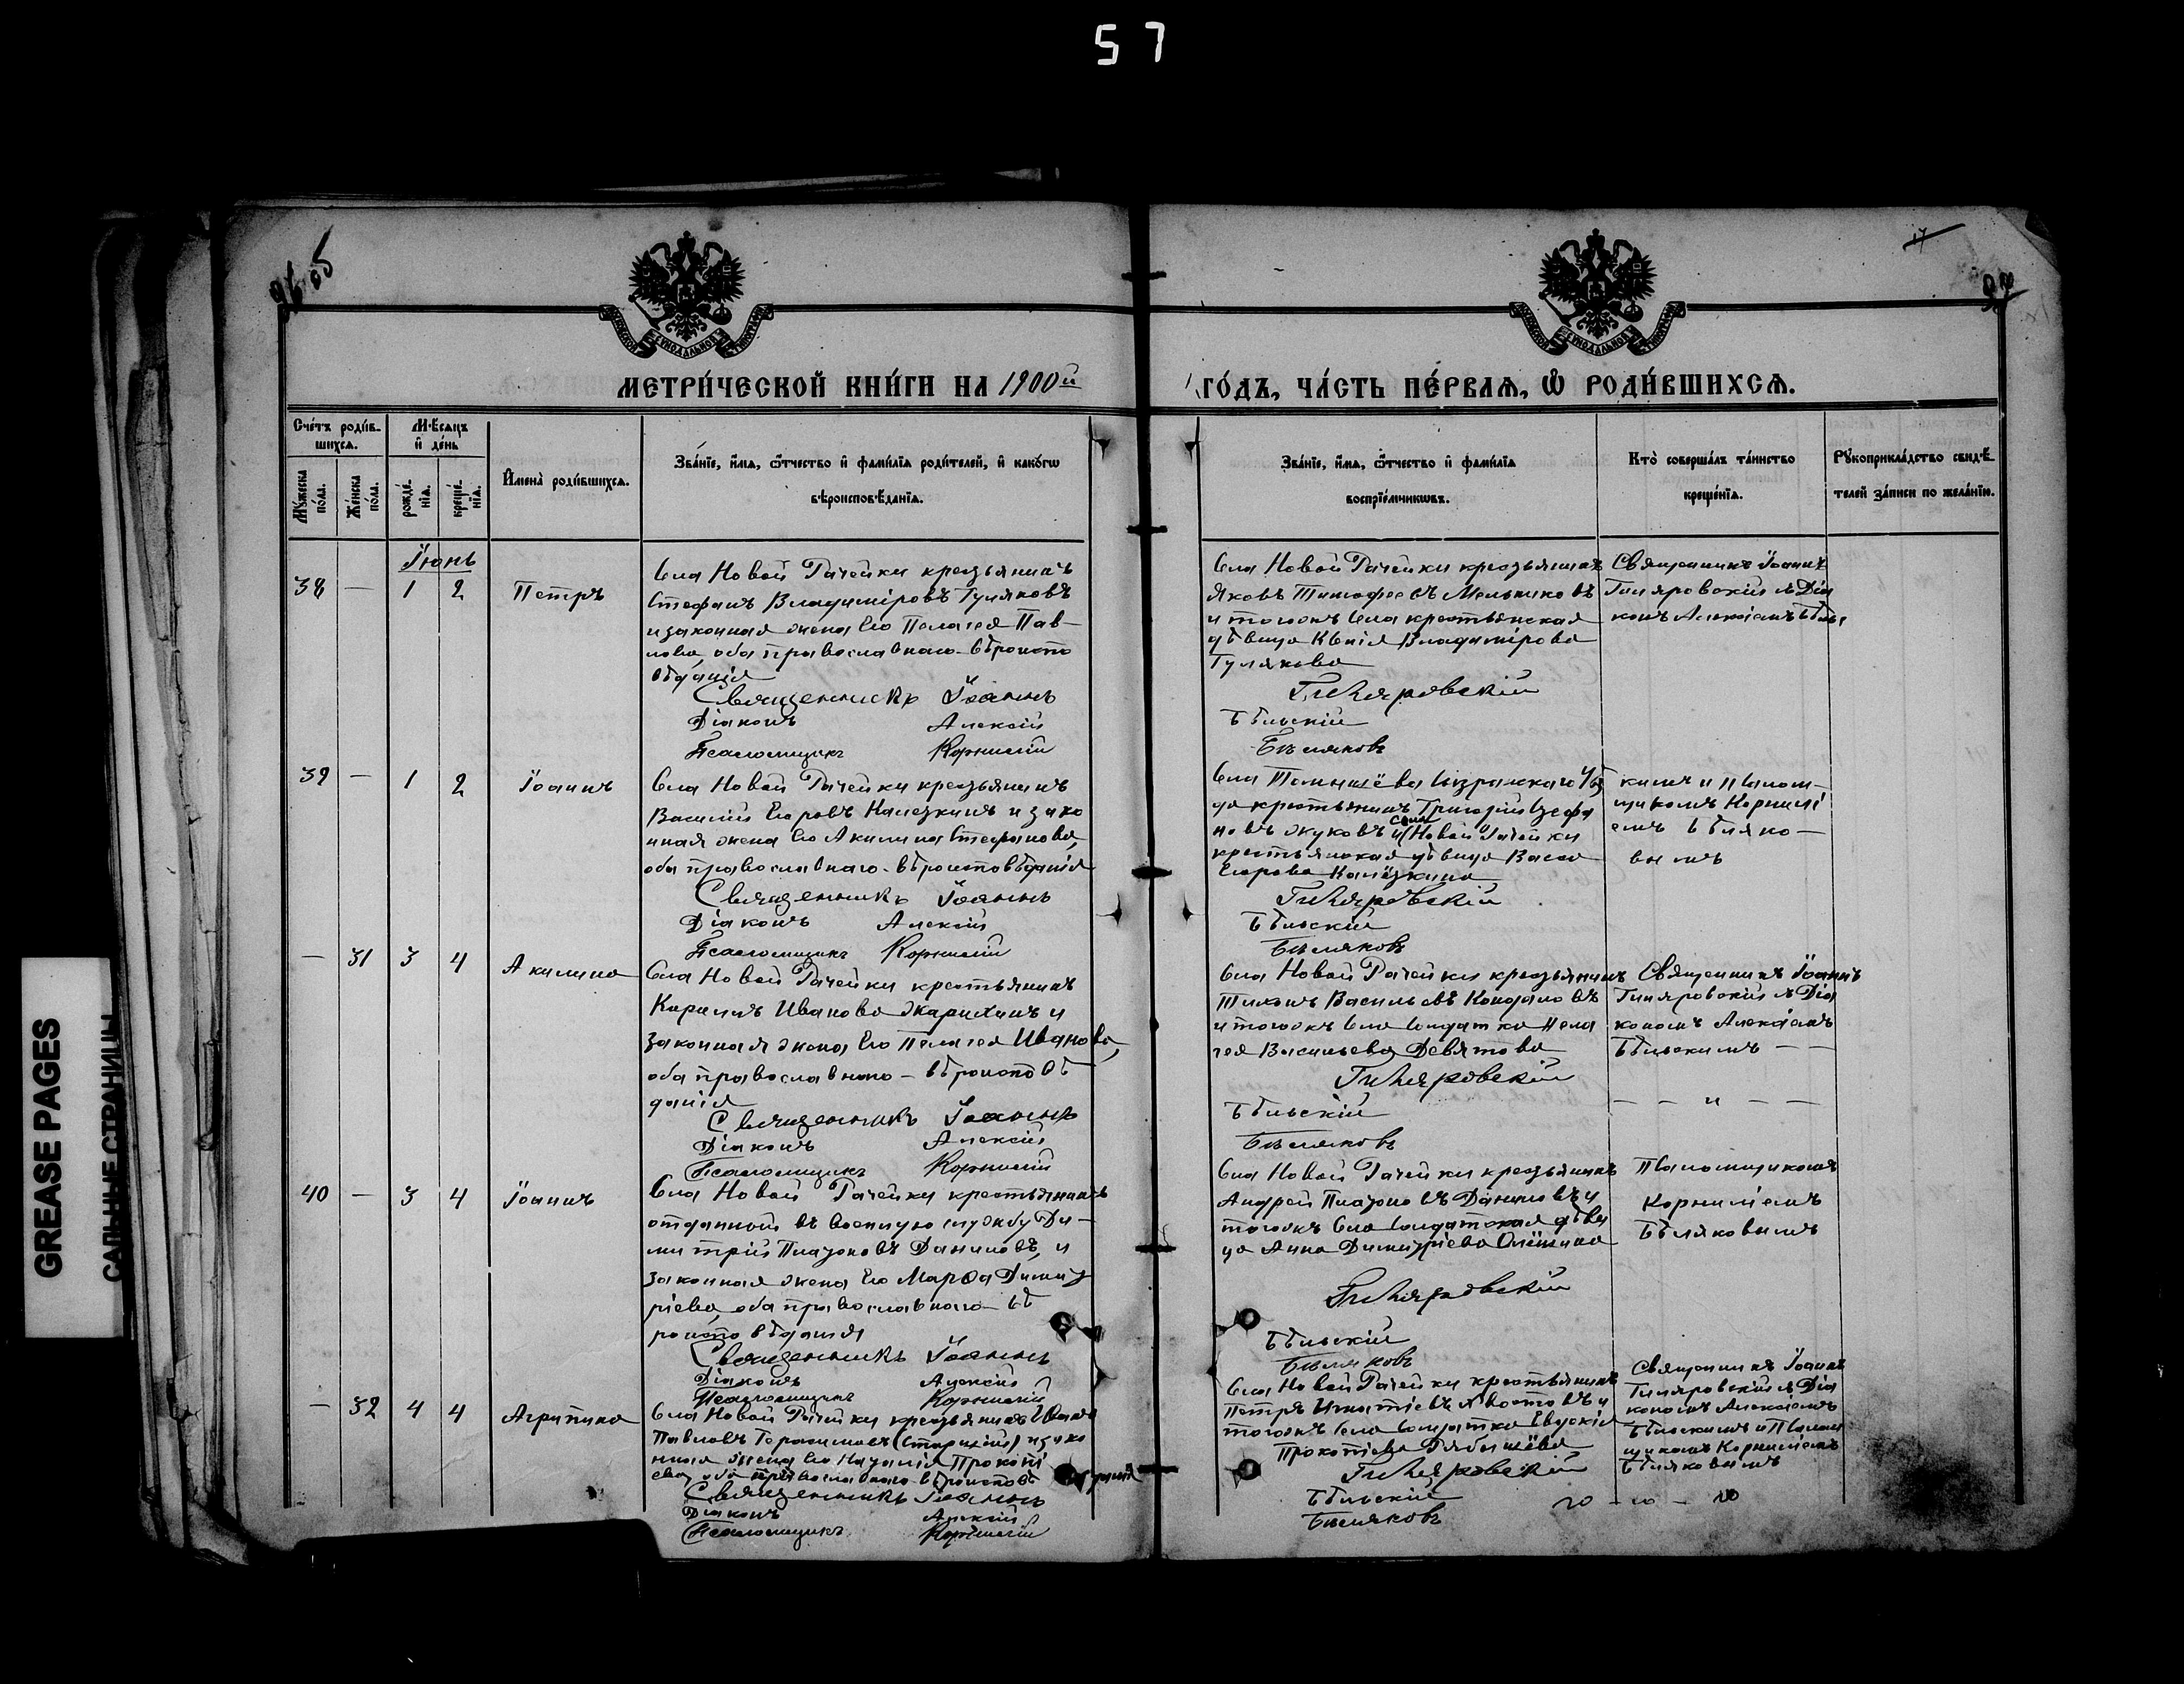 57
96 об
17
МЕТРИ́ЧЕСКОЙ КНИ́ГИ НА 1900й
ГО́ДЪ, ЧА́СТЬ ПЕ́РВАЯ, Ѡ҆ РОДИ́ВШИХСЯ.
Сче́тъ роди́в-
шихся.
Мѣ́сяцъ
и҆ де́нь
Му́жеска
по́ла.
Же́нска
по́ла.
рожде́-
нія.
креще́-
нія.
И҆мена̀ роди́вшихся.
Зва́ніе, и҆́мя, ѻ҆́тчество и҆ фами́лія роди́телей, и҆ како́гѡ
вѣроисповѣ́данія.
Зва́ніе, и҆́мя, ѻ҆́тчество и҆ фами́лія
воспріе́мникѡвъ.
Кто̀ соверша́лъ та́инство
креще́нія.
Рꙋкоприкла́дство свидѣ́-
телей за́писи по жела́нію.
Іюнь
38 — 1 2 Петръ
Села Новой Рачейки крестьянинъ
Стефанъ Владиміровъ Гуляковъ
и законная жена его Пелагея Пав-
лова, оба православнаго вѣроиспо
вѣданія
Священникъ Іоаннъ
Діаконъ Алексій
Псаломщикъ Корнилій
Села Новой Рачейки крестьянинъ
Яковъ Тимофеевъ Мельниковъ
и тогожъ села крестьянская
дѣвица Ксенія Владимірова
Гулякова
Гиляровскій
Бѣльскій
Бѣляковъ
Священникъ Іоаннъ
Гиляровскій съ Діа
кономъ Алексіемъ Бѣльс
39 — 1 2 Іоаннъ
Села Новой Рачейки крестьянинъ
Василій Егоровъ Калёзкинъ и зако
нная жена его Акилина Стефанова,
оба православнаго вѣроисповѣданія
Священникъ Іоаннъ
Діаконъ Алексій
Псаломщикъ Корнилій
Села Томышёва Сызранскаго Уѣз
да крестьянинъ Григорій
новъ Жуковъ и села Новой Рачейки
крестьянская дѣвица Васса
Егорова Калёзкина
Гиляровскій
Бѣльскій
Бѣляковъ
кимъ и Псалом-
щикомъ Корнилі
емъ Бѣляко-
вымъ
— 31 3 4 Акилина
Села Новой Рачейки крестьянинъ
Кириллъ Иванова Жарихинъ и
законная жена его Пелагея Иванова,
оба православнаго — вѣроисповѣ
данія
Священникъ Іоаннъ
Діаконъ Алексій
Псаломщикъ Корнилій
Села Новой Рачейки крестьянинъ
Тихонъ Васильевъ Коноваловъ
и тогожъ села солдатка Пела
гея Васильева Девятова
Гиляровскій
Бѣльскій
Бѣляковъ
Священникъ Іоаннъ
Гиляровскій съ Діа
кономъ Алексіемъ
Бѣльскимъ — —
— — и — —
40 — 3 4 Іоаннъ
Села Новой Рачейки крестьянинъ
отданной въ военную службу Ди-
митрій Платоновъ Даниловъ, и
законная жена его Марѳа Димит
ріева, оба православнаго вѣ
роисповѣданія
Священникъ Іоаннъ
Діаконъ Алексій
Псаломщикъ Корнилій
Села Новой Рачейки крестьянинъ
Андрей Платоновъ Даниловъ и
тогожъ села солдатская дѣви
ца Анна Димитріева
Гиляровскій
Бѣльскій
Бѣляковъ
Псаломщикомъ
Корниліемъ
Бѣляковымъ
— 32 4 4 Агрипина
Села Новой Рачейки крестьянинъ Іоаннъ
Павловъ Герасимовъ (Старшій) и зако
нная жена его Наталія Прокопі
ева, оба православнаго вѣроисповѣ
данія
Священникъ Іоаннъ
Діаконъ Алексій
Псаломщикъ Корнилій
Села Новой Рачейки крестьянинъ
Петръ Игнатіевъ Хвостовъ и
тогожъ села солдатка Евдокія
Прокопіева Рябышёва
Гиляровскій
Бѣльскій
Бѣляковъ
Священникъ Іоаннъ
Гиляровскій съ Діа
кономъ Алексіемъ
Бѣльскимъ и Псалом
щикомъ Корниліемъ
Бѣляковымъ
GREASE PAGES
САЛЬНЫЕ СТРАНИЦЫ